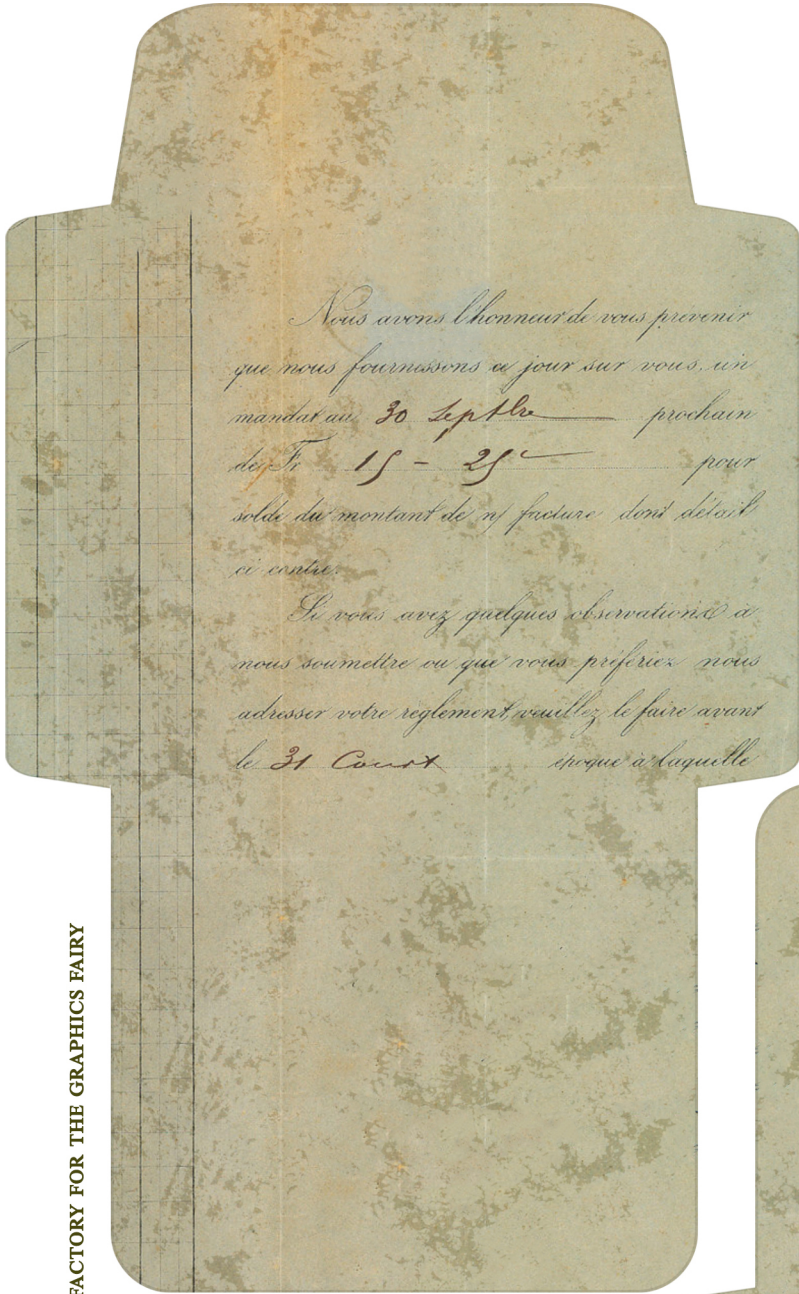 Nous avons l'honneur de vous prévenir
que nous fournissons ce jour sur vous, un
mandat au 30 Septbre prochain
de Fr 15 - 25c pour
solde du montant de n/ facture dont détail
ci contre.
Si vous avez quelques observations à
nous soumettre ou que vous préfériez nous
adresser votre règlement, veuillez le faire avant
le 31 Court époque à laquelle
FACTORY FOR THE GRAPHICS FAIRY